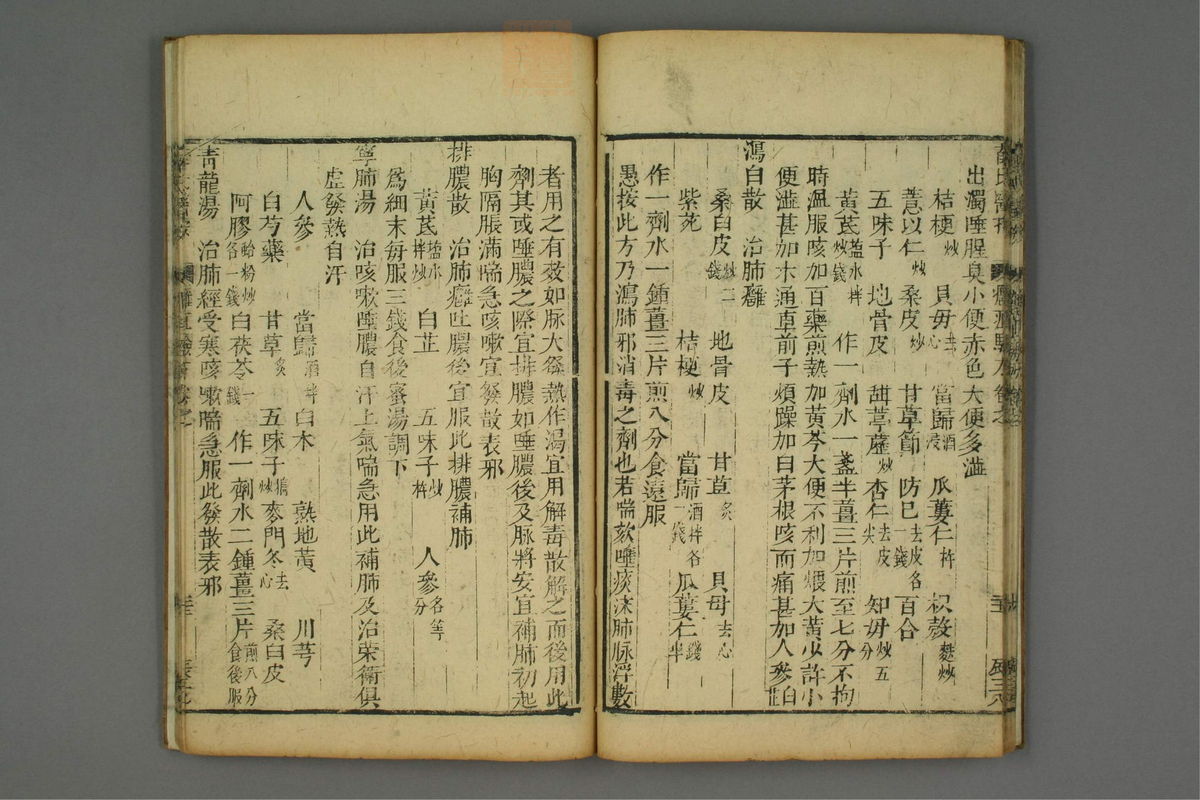 出濁唾腥臭小便赤色大便多澁
桔梗炒 貝母去心 當歸酒浸 瓜蔞仁杵 枳殼麩炒
薏以仁炒 桑皮炒 甘草節 防己去皮各一錢 百合
五味子 地骨皮 甜葶藶炒 杏仁去皮尖 知母炒五分
黃芪盐水拌炒錢 作一劑水一盞半薑三片煎至七分不拘
時溫服咳加百藥煎熱加黃芩大便不利加煨大黃少許小
便澁甚加木通車前子煩躁加白茅根咳而痛甚加人參白芷
瀉白散 治肺癰
桑白皮炒二錢 地骨皮 甘草炙 貝母去心
紫苑 桔梗炒 當歸酒拌各一錢 瓜蔞仁錢半
作一劑水一鍾薑三片煎八分食遠服
愚按此方乃瀉肺邪消毒之劑也若喘欬唾痰沫肺脉浮數
者用之有效如脉大發熱作渴宜用解毒散解之而後用此
劑其或唾膿之際宜排膿如唾膿後及脉將安宜補肺初起
胸隔脹滿喘急咳嗽宜發散表邪
排膿散 治肺癰吐膿後宜服此排膿補肺
黃芪盐水拌炒 白芷 五味子炒杵 人參各等分
爲細末每服三錢食後蜜湯調下
寧肺湯 治咳嗽唾膿自汗上氣喘急用此補肺及治荣衛俱
虛發熱自汗
人參 當歸酒拌 白术 熟地黃 川芎
白芍藥 甘草炙 五味子炒搗 麥門冬去心 桑白皮
阿膠蛤粉炒各一錢 白茯苓一錢 作一劑水二鍾薑三片煎八分食後服
青龍湯 治肺經受寒咳嗽喘急服此發散表邪